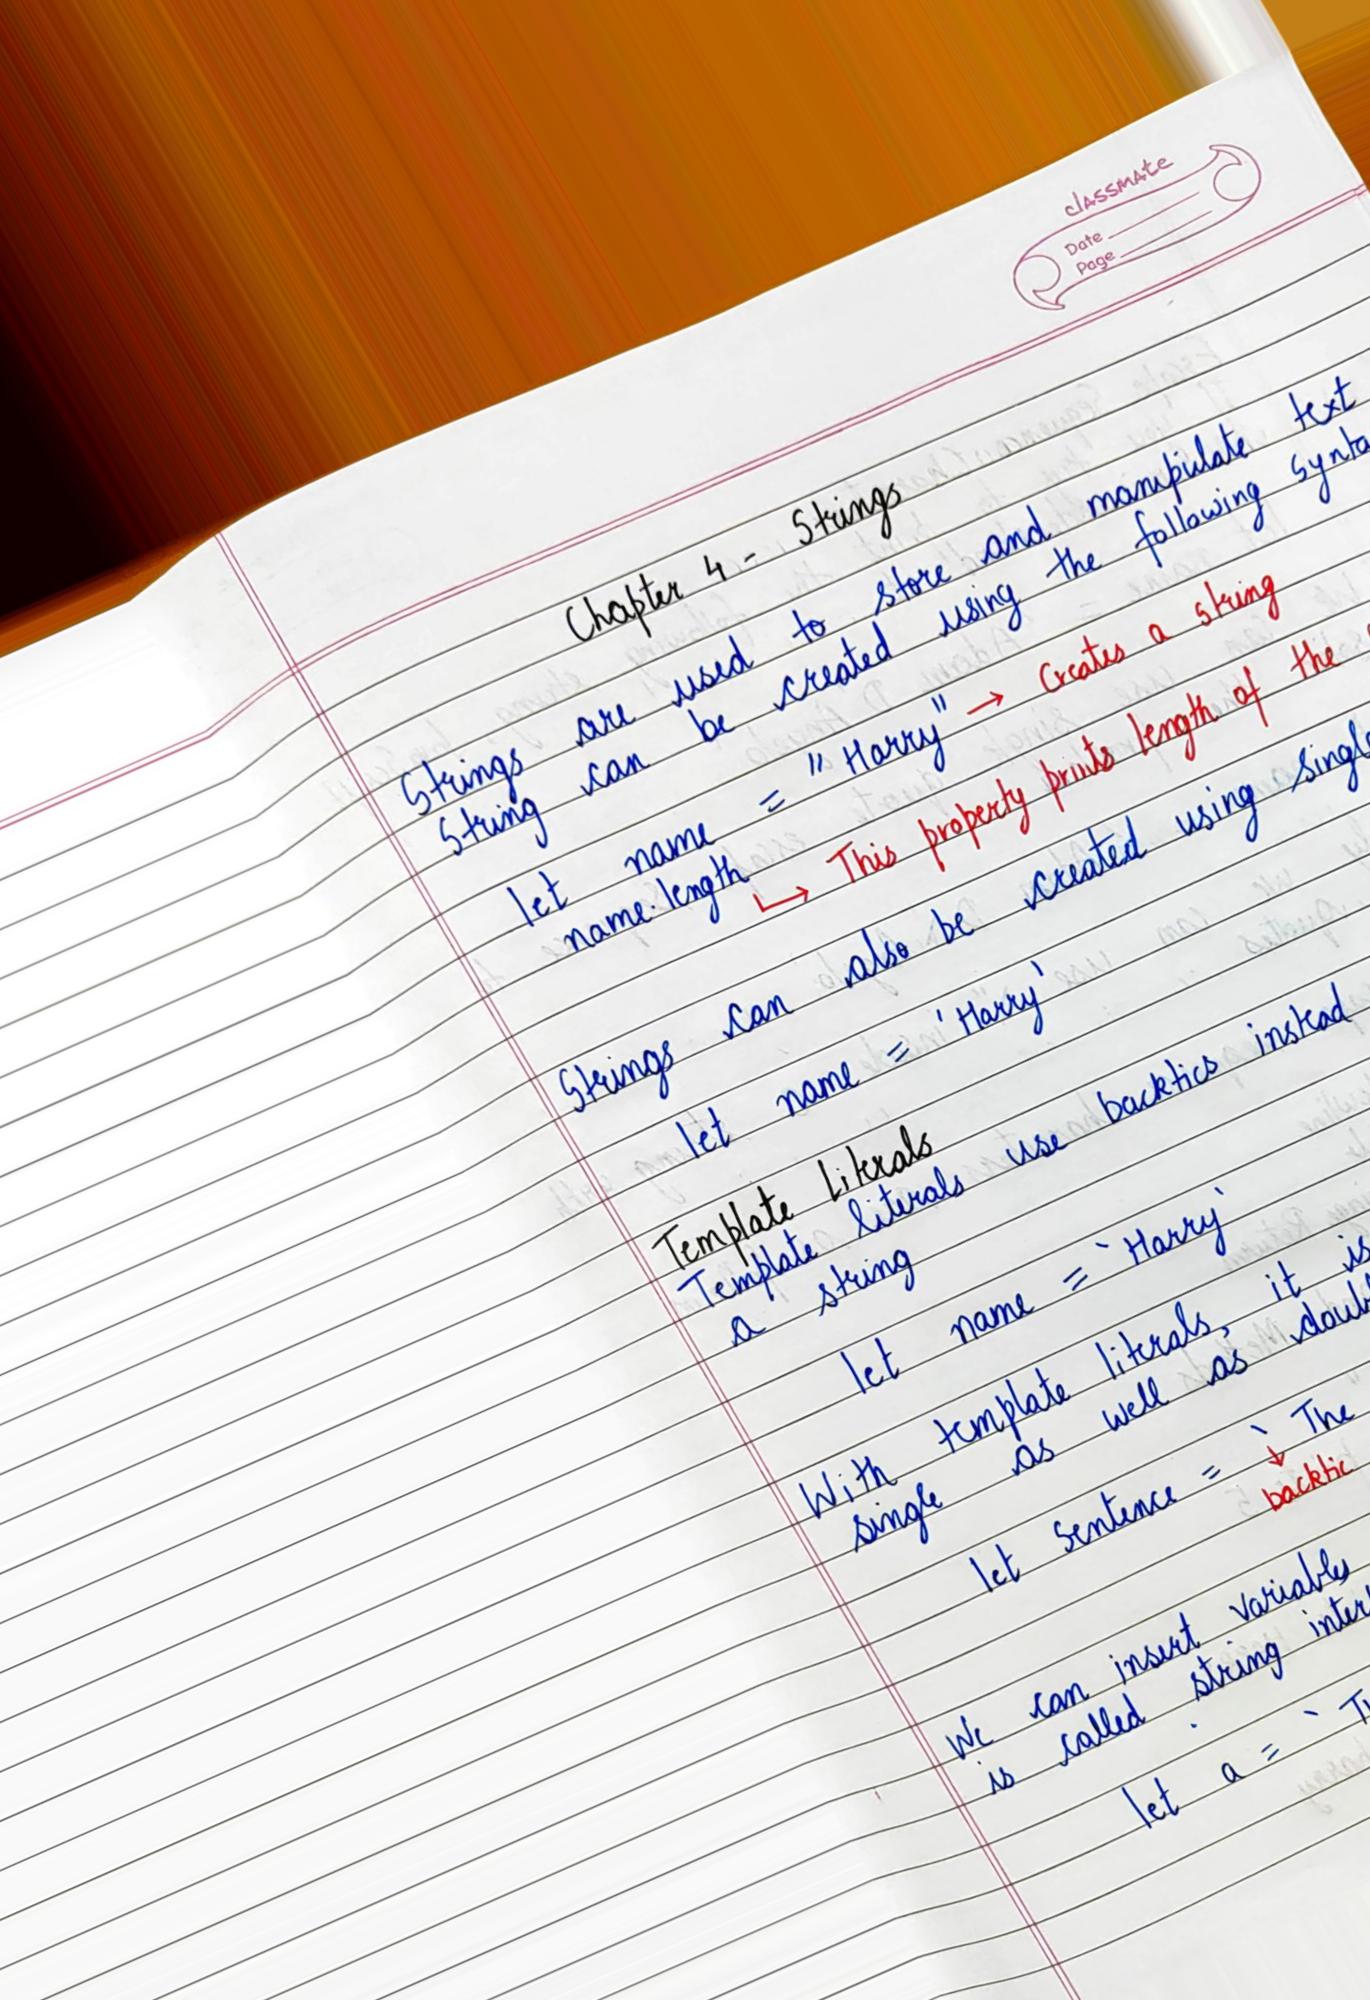 classmate
Date
Page
Chapter 4 - Strings
Strings are used to store and manipulate text
String can be created using the following
let name = "Harry" → Creates a string
name.length
↳ This property prints length of the
Strings can also be created using
let name = 'Harry'
Template Literals
Template literals use backtics instead
a string
let name = `Harry`
With template literals, it is
single as well as
let sentence = ` The
↓
backtic
We can insert variables
is called string
let a = `